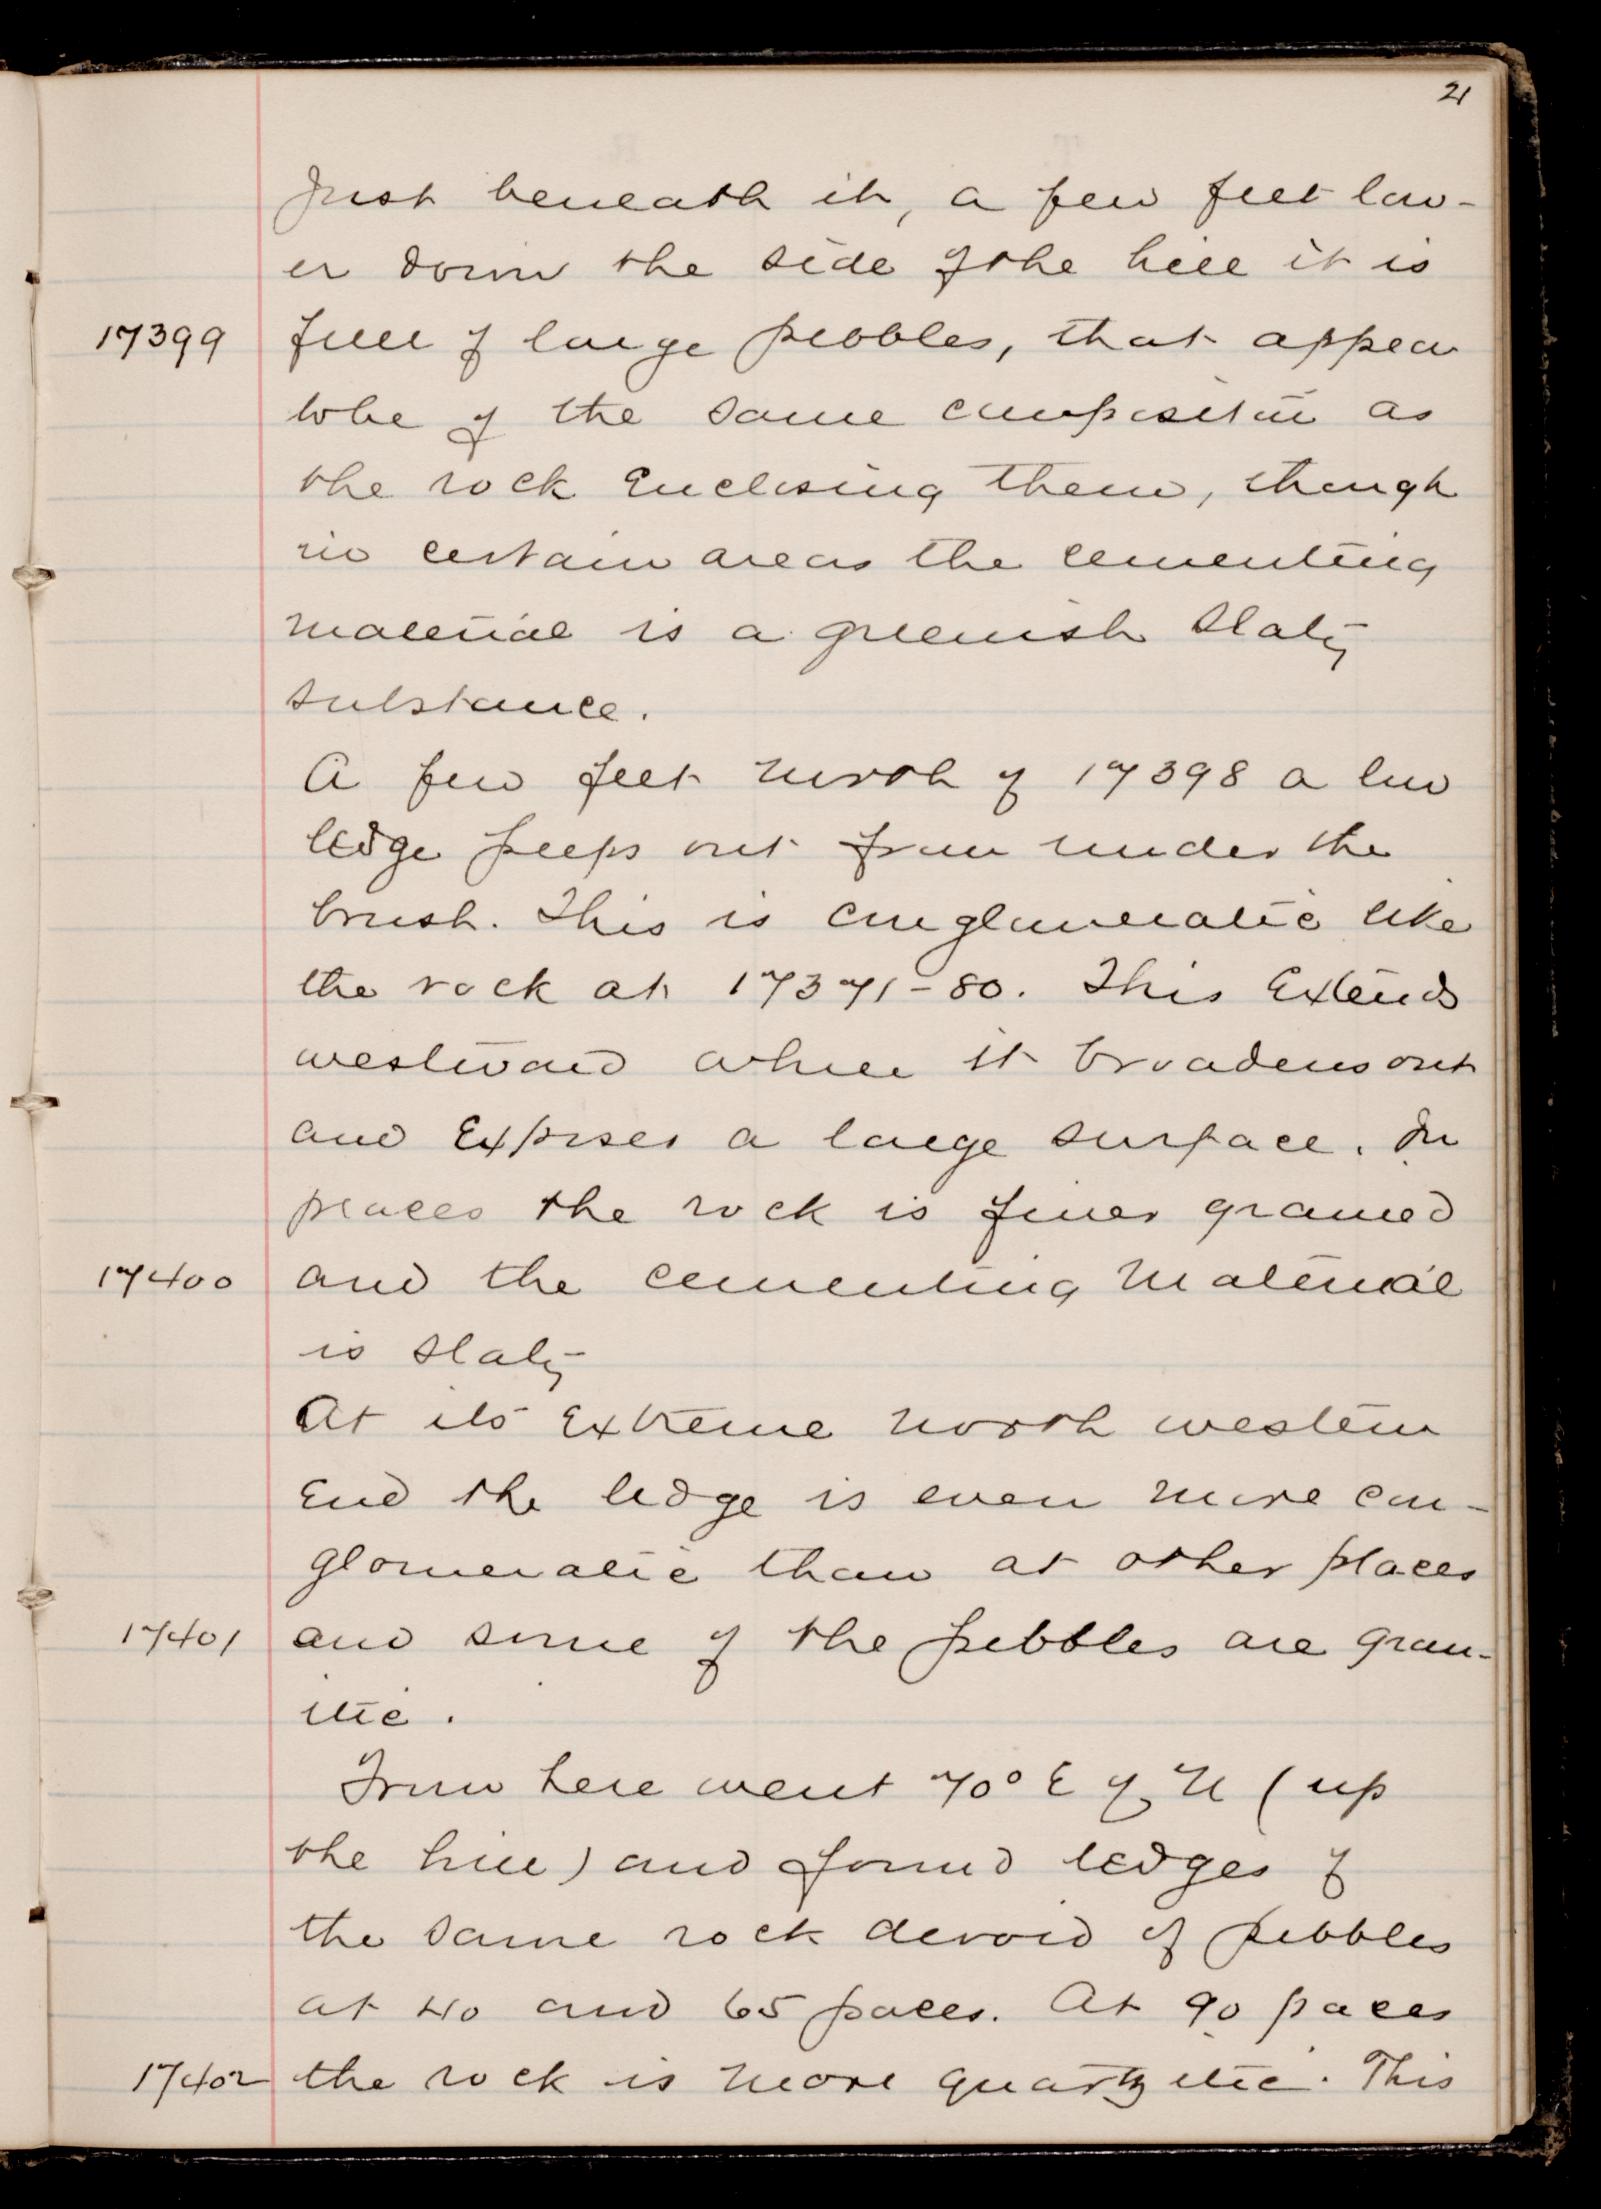 21
Just beneath it, a few feet low-
er down the side of the hill it is
17399 full of large pebbles, that appear
to be of the same composition as
the rock enclosing them, though
in certain areas the cementing
material is a greenish slaty
substance.
A few feet north of 17398 a low
ledge peeps out from under the
brush. This is conglomeratic like
the rock at 17371-80. This extends
westward where it broadens out
and exposes a large surface. In
places the rock is finer grained
17400 and the cementing material
is slaty
At its extreme north western
end the ledge is even more con-
glomeratic than at other places
17401 and some of the pebbles are gran-
itic.
From here went 70° E of N (up
the hill) and found ledges of
the same rock devoid of pebbles
at 40 and 65 paces. At 90 paces
17402 the rock is more quartzitic. This